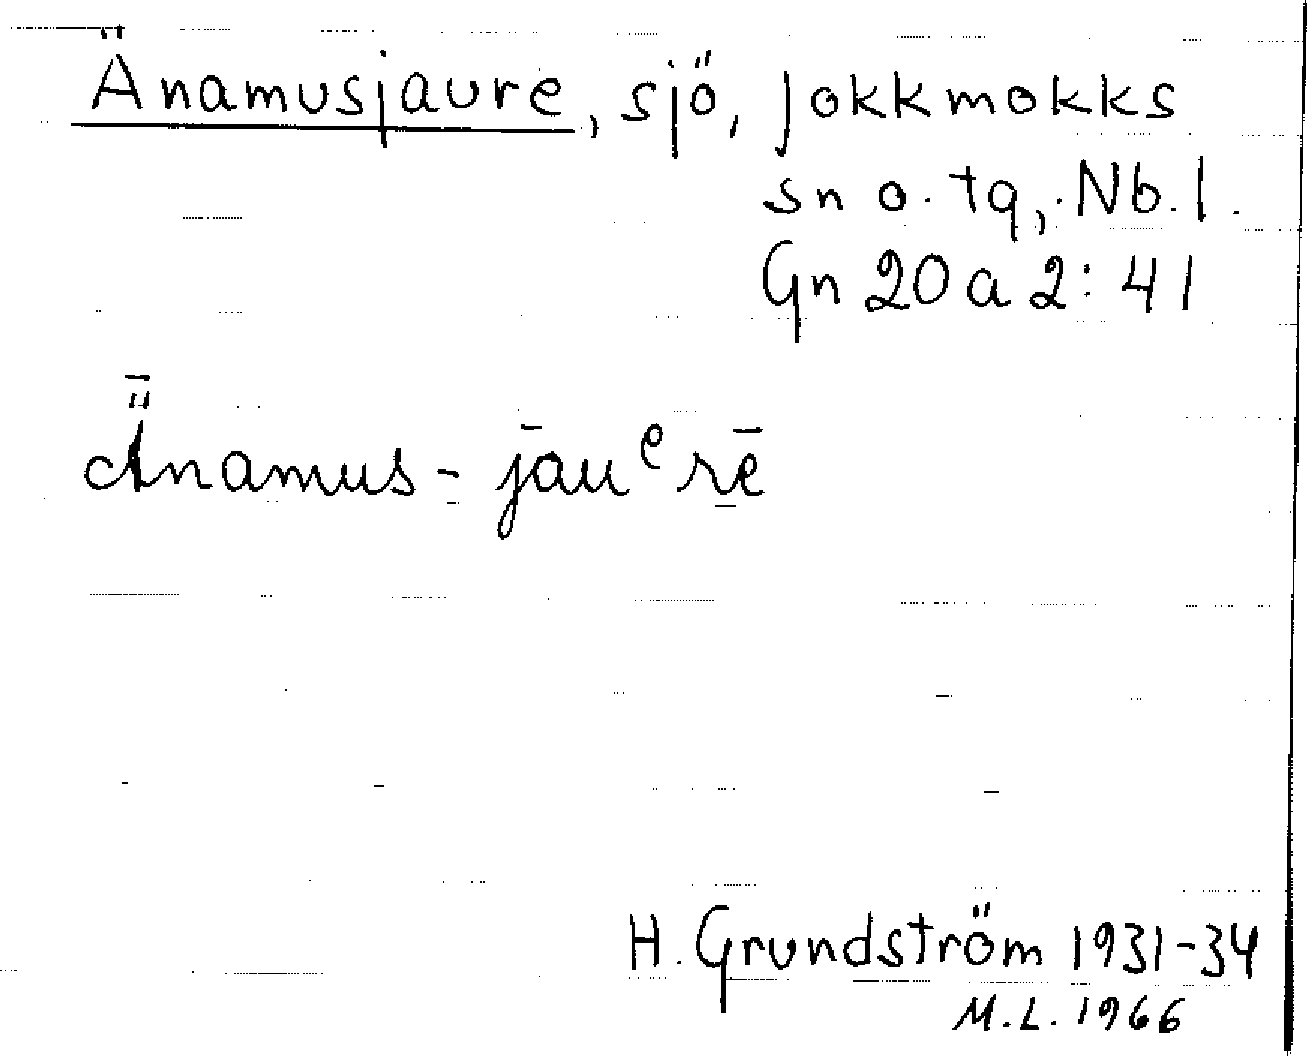 Änamusjaure, sjö, Jokkmokks
sn o. tg, Nb. l.
Gn 20 a 2:41
Ǟnamus-jāuᵉrē
H. Grundström 1931-34
M.L. 1966